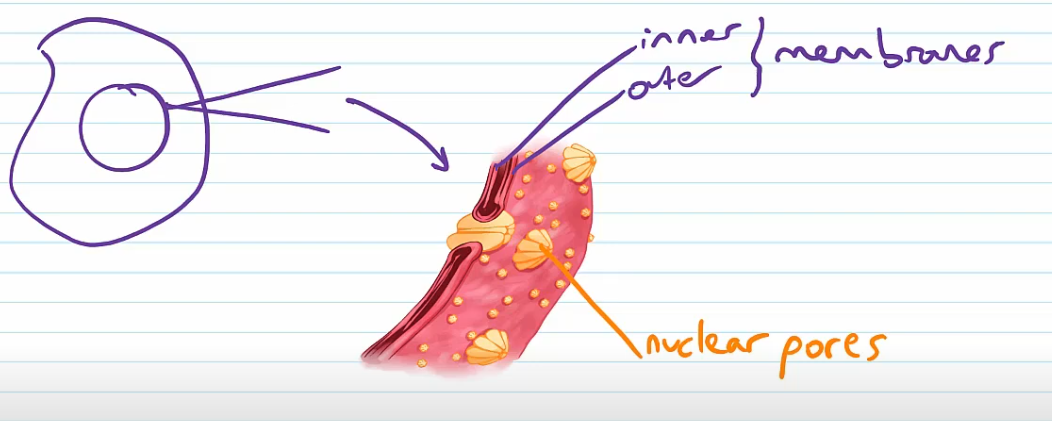 inner
outer
membranes
nuclear pores